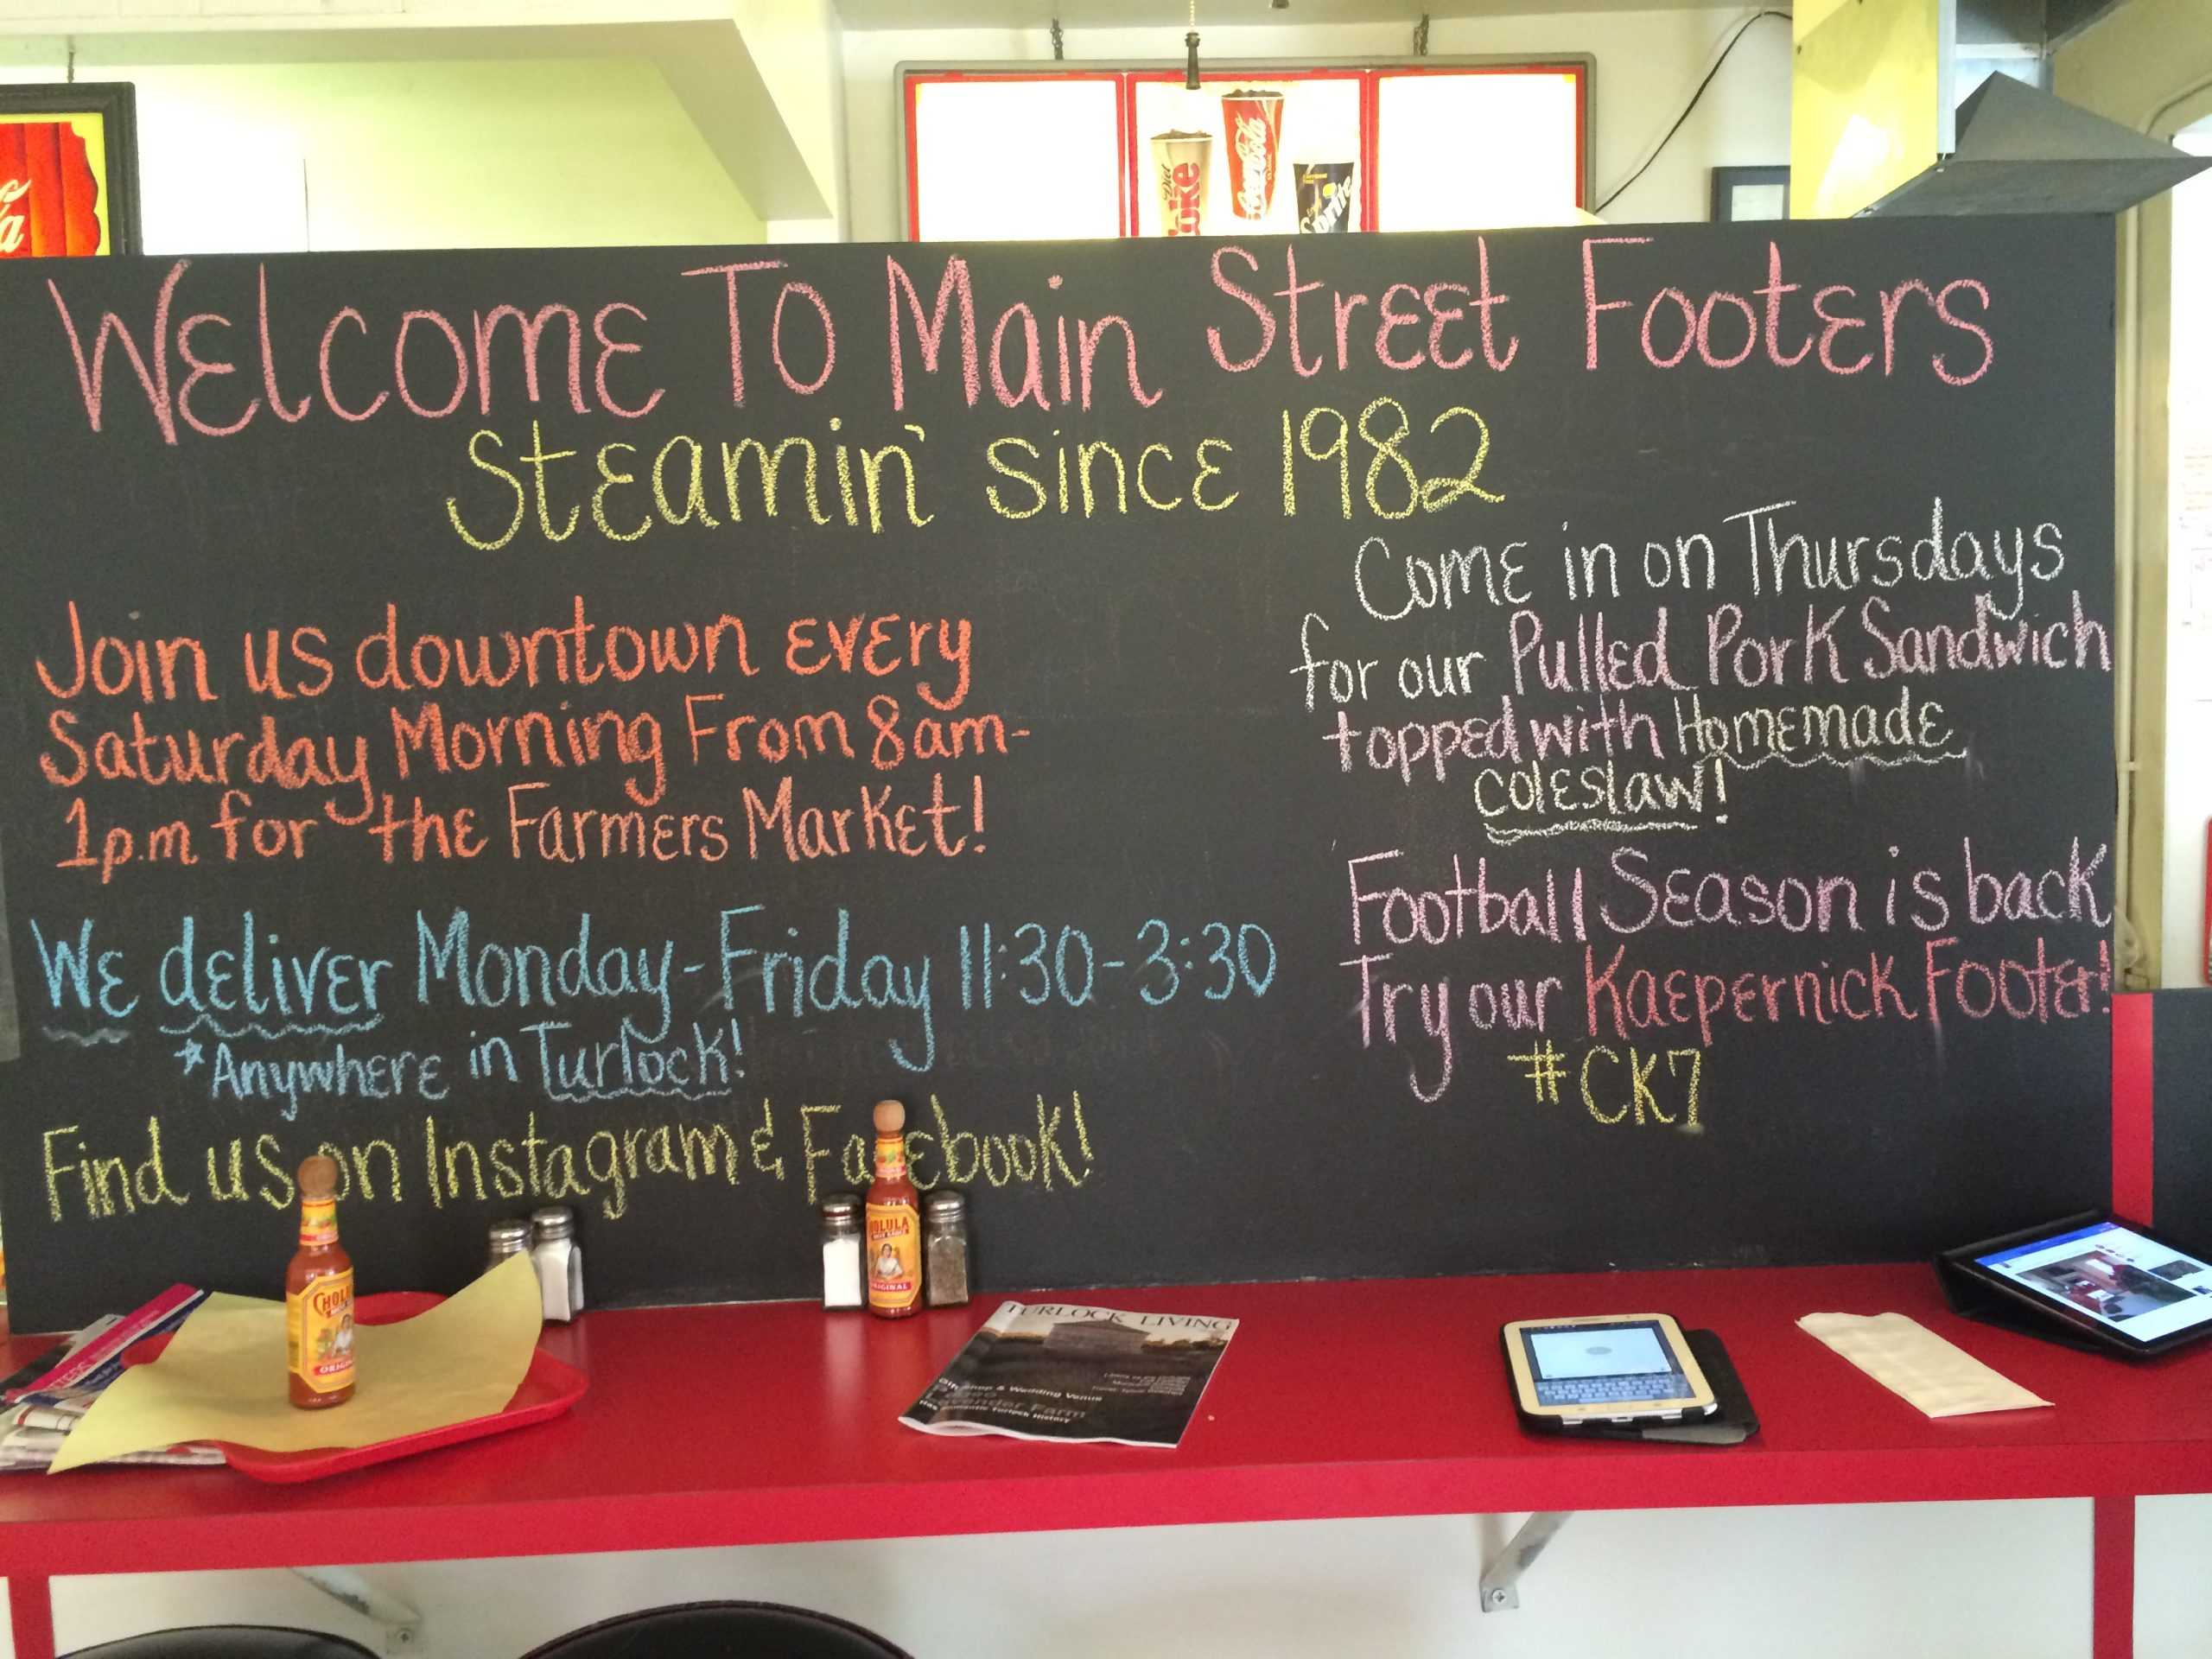 Diet Coke
Coca-Cola
Sprite
Welcome To Main Street Footers
Steamin' since 1982
Join us downtown every
Saturday Morning From 8am-
1p.m for the Farmers Market!
We deliver Monday-Friday 11:30-3:30
*Anywhere in Turlock!
Find us on Instagram & Facebook!
Come in on Thursdays
for our Pulled Pork Sandwich
topped with Homemade
coleslaw!
Football Season is back
Try our Kaepernick Footer!
#CK7
CHOLULA
ORIGINAL
CHOLULA
HOT SAUCE
ORIGINAL
TURLOCK LIVING
Gift Shop & Wedding Venue
Lavender Farm
Has Romantic Turlock History